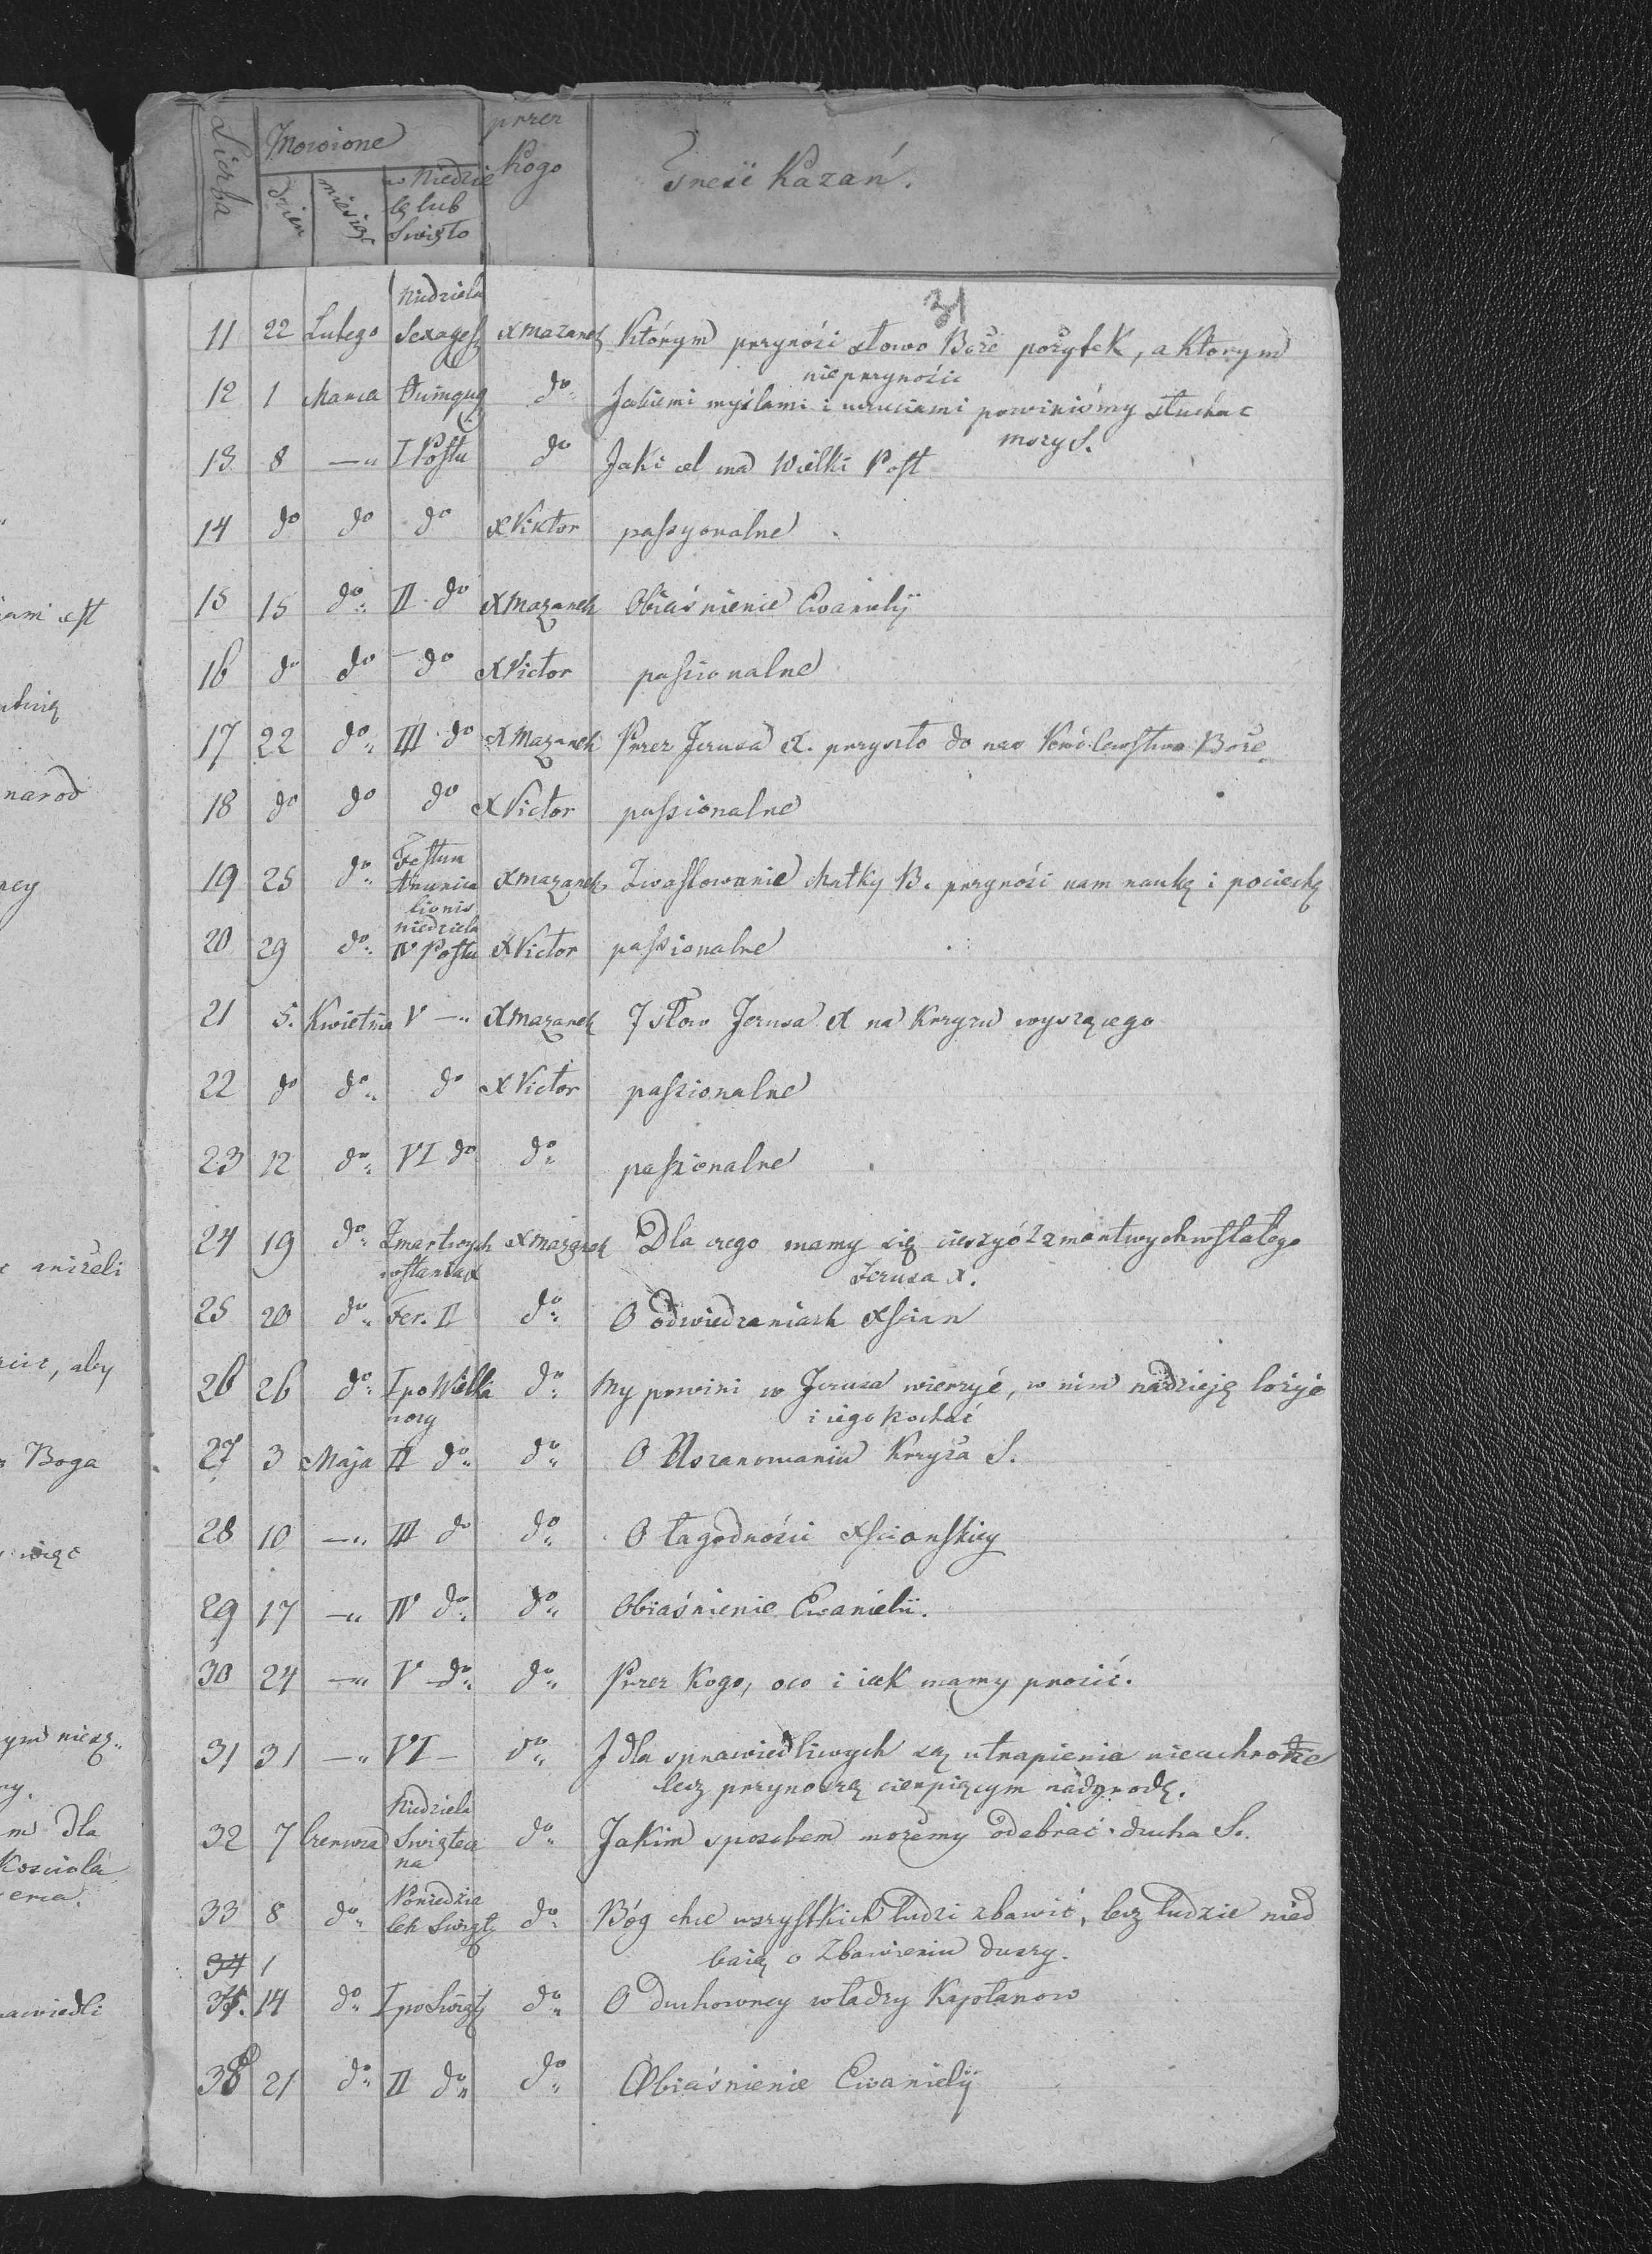 Liczba
Mowione
przez
Kogo
Treść Kazań.
dzien
miesiąc
w Niedzie
lę lub
Swięto
31
Niedziela
11 22 Lutego Sexages XMazanek Którym przynosi słowo Boże pożytek, a ktorym
nie przynosi
12 1 Marca Quinqug do Jakiemi myślami i uczuciami powiniśmy słuchac
mszy S.
13 8 —„ I Postu do Jaki cel ma Wielki Post
14 do do do XViktor passyonalne
15 15 do„ II do XMazanek Obiaśnienie Ewanielij
16 do do do XVictor passionalne
17 22 do„ III do XMazanek Przez Jezusa X. przyszło do nas Królewstwo Boże
18 do do do XVictor passionalne
Festum
19 25 do„ Anunica XMazanek Zwastowanie Matky B. przynosi nam naukę i pociechę
tionis
niedziela
20 29 do„ IV Postu XVictor passionalne
21 5. Kwietnia V —„ XMazanek 7 słow Jezusa X na Krzyzu wyszącego
22 do do„ do XVictor passionalne
23 12 do„ VI do do„ passionalne
24 19 do„ Zmartwych XMazanek Dla czego mamy się cieszyć z zmartwychwstałego
wstania X Jezusa X.
25 20 do„ Fer. II do„ O odwiedzaniach Xscian
26 26 do„ I po Wielka do„ My powini w Jezusa wierzyć, w nim nadzieję łożyć
nocy i iego kochać
27 3 Maja II do„ do„ O Uszanowaniu Krzyża S.
28 10 —„ III do do„ O łagodności Xscianskiey
29 17 —„ IV do„ do„ Obiaśnienie Ewanielii.
30 24 —„ V do„ do„ Przez Kogo, oco i iak mamy prosić.
31 31 —„ VI — do„ I dla sprawiedliwych są utrapienia nieuchronne
lecz przynoszą cierpiącym nadgrodę.
Niedziela
32 7 Czerwca Swiątecz do„ Jakim sposobem możemy odebrać ducha S.
na
Poniedzia
33 8 do„ lek Swiąt do„ Bóg chce wszystkich ludzi zbawić, lecz ludzie nied
34 1 baią o Zbawieniu duszy.
34. 14 do„ I po Świąt do„ O duchowney władzy Kapłanow
35 21 do„ II do„ do„ Obiaśnienie Ewanielij
narod
anizeli
aby
Boga
więc
dla
Kosciola